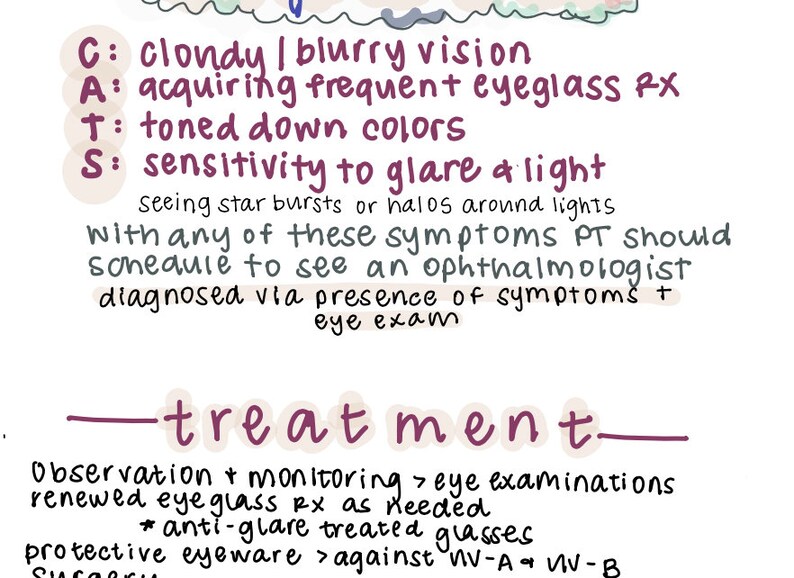 C: cloudy / blurry vision
A: acquiring frequent eyeglass RX
T: toned down colors
S: sensitivity to glare & light
seeing star bursts or halos around lights
with any of these symptoms PT should
schedule to see an ophthalmologist
diagnosed via presence of symptoms +
eye exam
treatment
Observation + monitoring > eye examinations
renewed eyeglass RX as needed
* anti-glare treated glasses
protective eyeware > against UV-A & UV-B
surgery